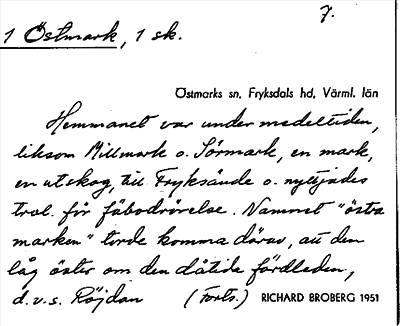 7.
1 Östmark, 1 sk.
Östmarks sn, Fryksdals hd, Värml. län
Hemmanet var under medeltiden,
liksom Millmark o. Sörmark, en mark,
en utskog, till Fryksände o. nyttjades
trol. för fäbodrörelse. Namnet "östra
marken" torde komma därav, att den
låg öster om den dåtida färdleden,
d.v.s. Röjdan (Forts.) RICHARD BROBERG 1951